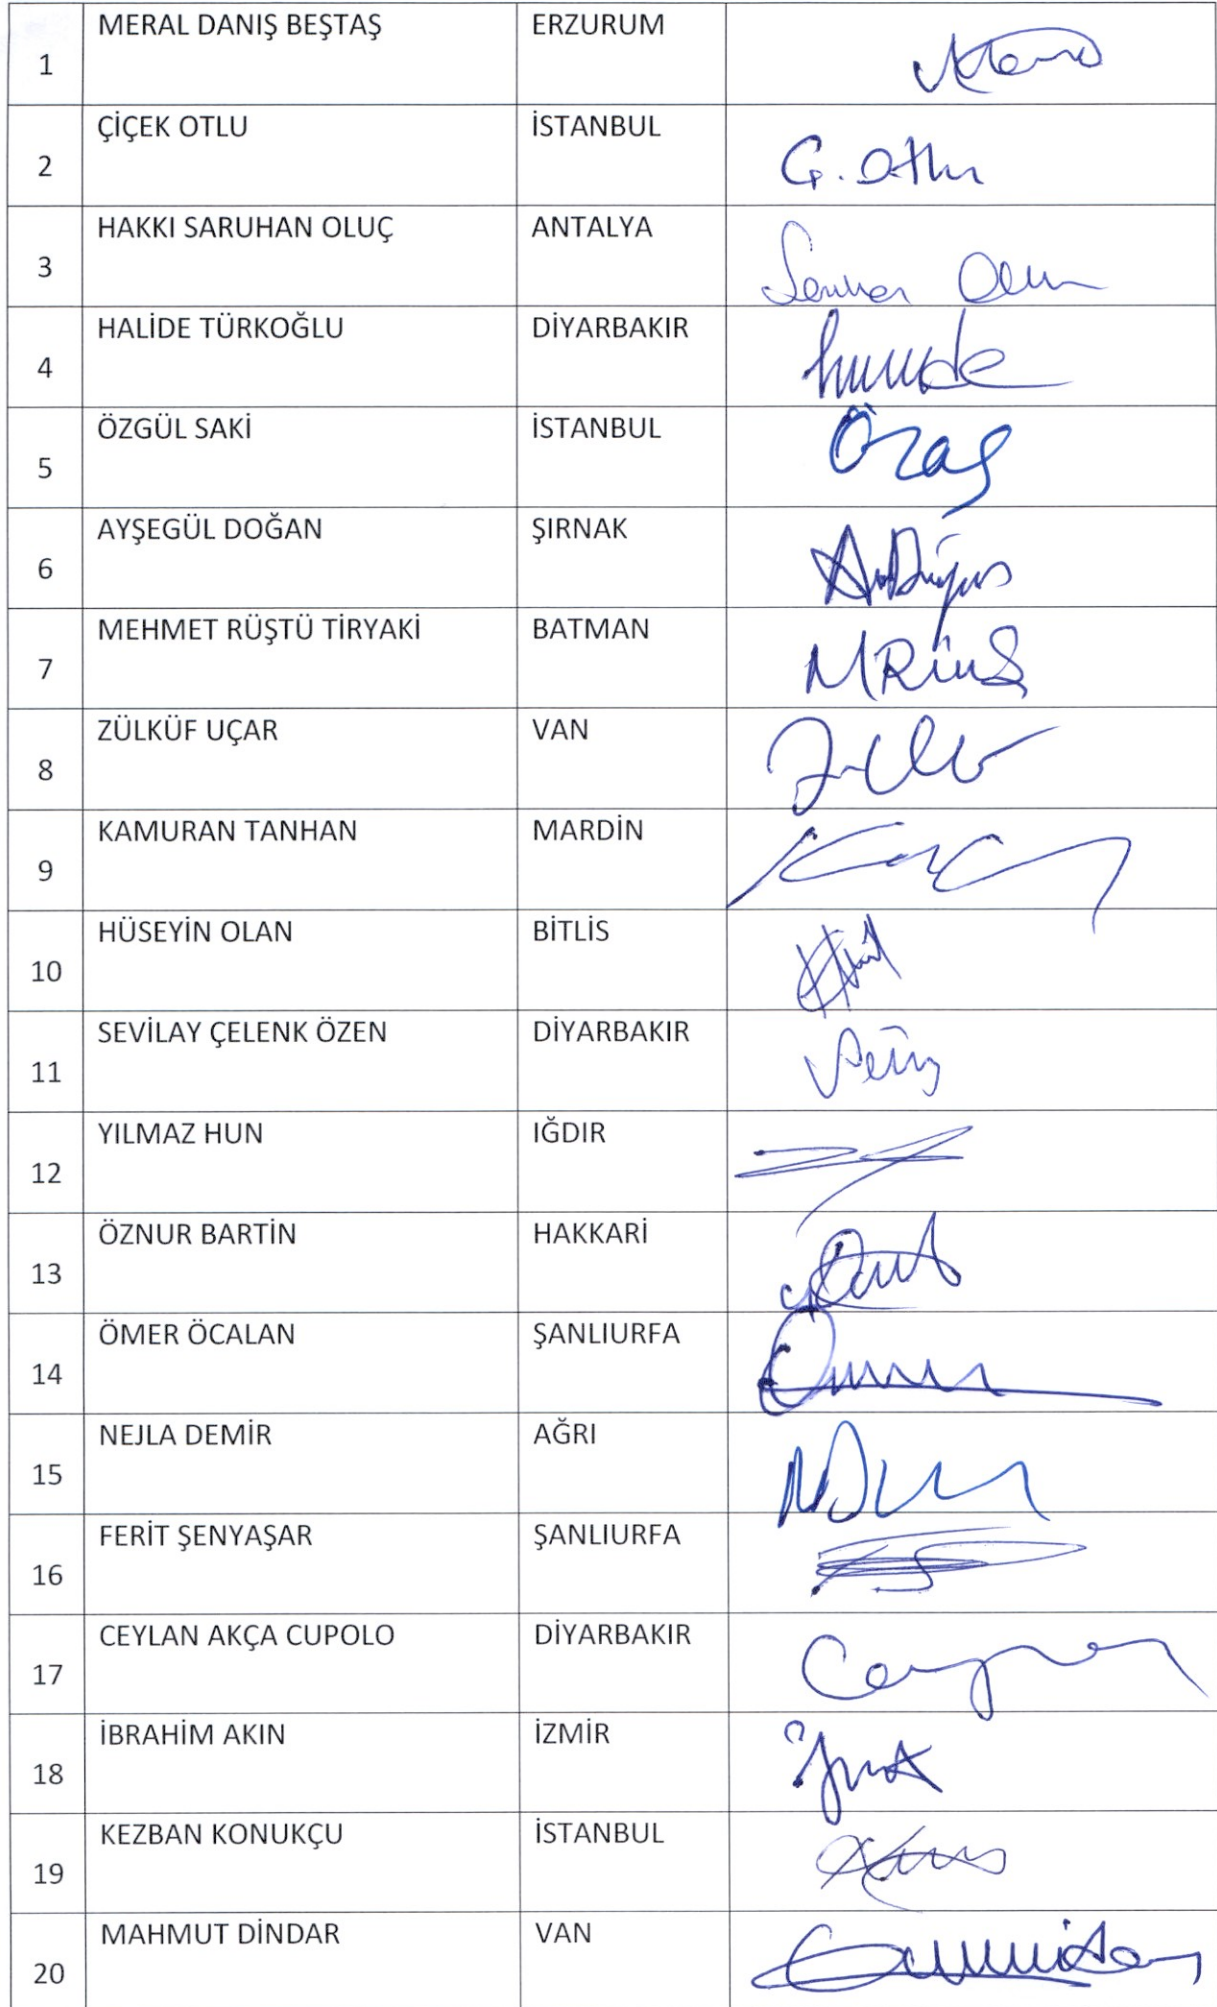 1 MERAL DANIŞ BEŞTAŞ ERZURUM
2 ÇİÇEK OTLU İSTANBUL Ç. Otlu
3 HAKKI SARUHAN OLUÇ ANTALYA
4 HALİDE TÜRKOĞLU DİYARBAKIR
5 ÖZGÜL SAKİ İSTANBUL
6 AYŞEGÜL DOĞAN ŞIRNAK
7 MEHMET RÜŞTÜ TİRYAKİ BATMAN
8 ZÜLKÜF UÇAR VAN
9 KAMURAN TANHAN MARDİN
10 HÜSEYİN OLAN BİTLİS
11 SEVİLAY ÇELENK ÖZEN DİYARBAKIR
12 YILMAZ HUN IĞDIR
13 ÖZNUR BARTİN HAKKARİ
14 ÖMER ÖCALAN ŞANLIURFA
15 NEJLA DEMİR AĞRI
16 FERİT ŞENYAŞAR ŞANLIURFA
17 CEYLAN AKÇA CUPOLO DİYARBAKIR
18 İBRAHİM AKIN İZMİR
19 KEZBAN KONUKÇU İSTANBUL
20 MAHMUT DİNDAR VAN